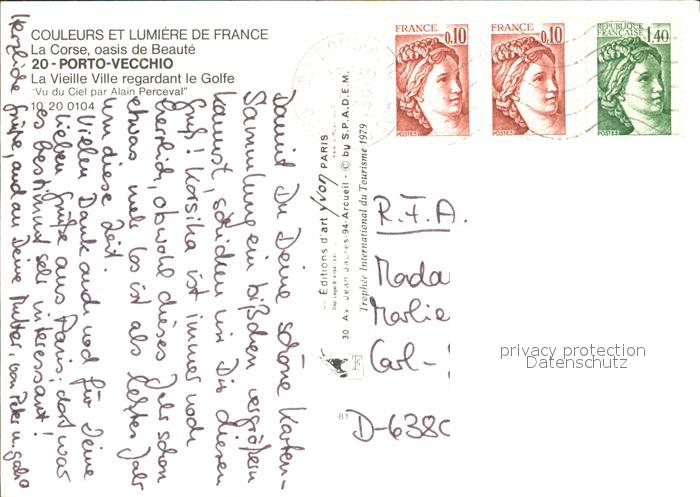 COULEURS ET LUMIÈRE DE FRANCE
La Corse, oasis de Beauté
20 - PORTO-VECCHIO
La Vieille Ville regardant le Golfe
"Vu du Ciel par Alain Perceval"
10 20 0104
Damit Du Deine schöne Karten-
Sammlung ein bißchen vergrößern
kannst, schicken wir Dir diesen
Gruß! Korsika ist immer noch
herrlich, obwohl dieses Jahr schon
etwas mehr los ist als letztes Jahr
um diese Zeit.
Vielen Dank auch noch für Deine
lieben Grüße aus Paris; dort war
es bestimmt sehr interessant!
Herzliche Grüße, auch an Deine Mutter, von Peter u.
Éditions d'art Yvon PARIS
30 Av. Jean Jaurès-94-Arcueil - © by S.P.A.D.E.M.
Trophée International du Tourisme 1979
81
FRANCE 0,10
POSTES
FRANCE 0,10
POSTES
RÉPUBLIQUE FRANÇAISE 1,40
POSTES
R.F.A.
Mada
Marlie
Carl-
D-6380
privacy protection
Datenschutz